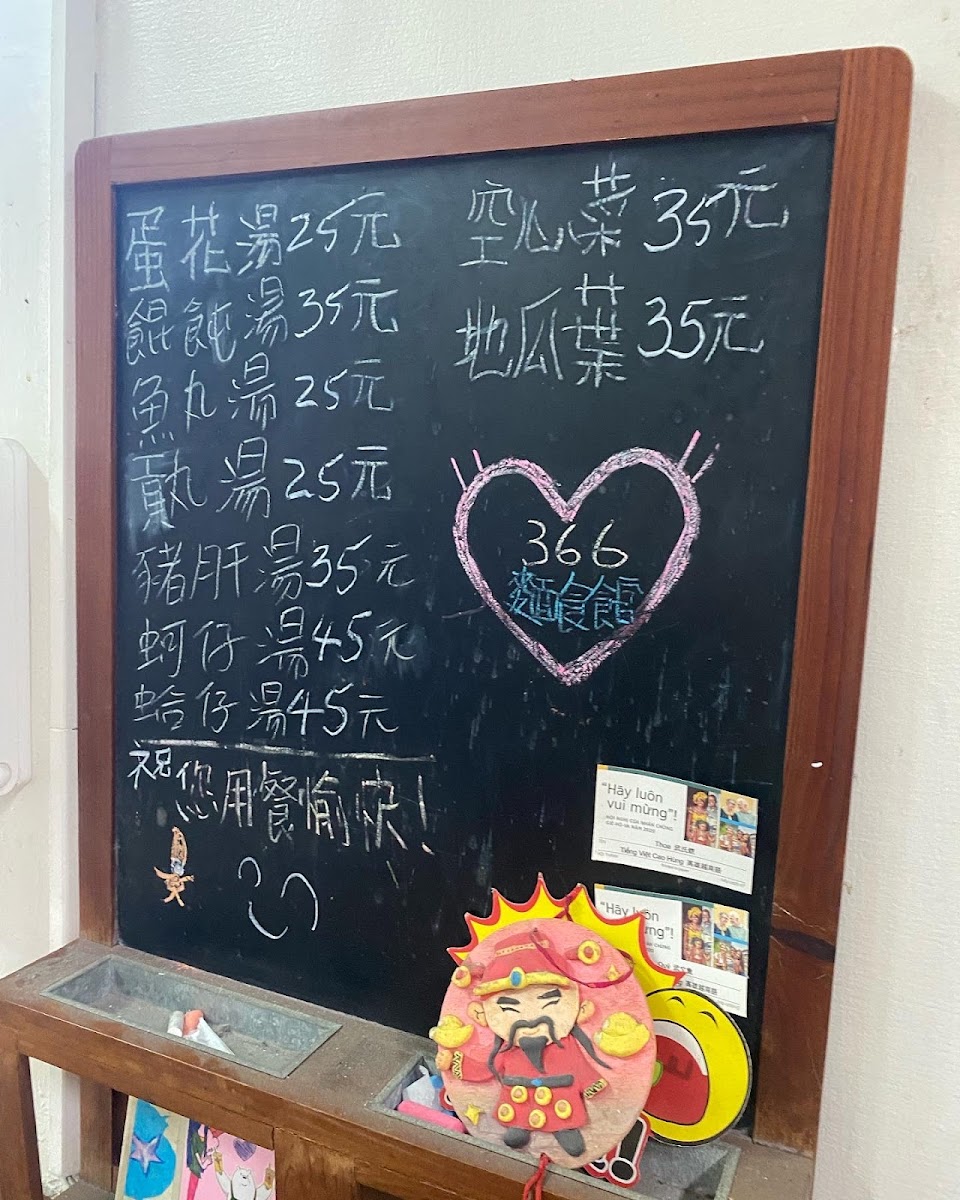 蛋花湯25元
餛飩湯35元
魚丸湯25元
貢丸湯25元
豬肝湯35元
蚵仔湯45元
蛤仔湯45元
祝您用餐愉快!
空心菜35元
地瓜葉35元
366
麵食館
"Hãy luôn
vui mừng"!
Thoa
Tiếng Việt Cao Hùng 高雄越南語
"Hãy luôn
ừng"!
Quê